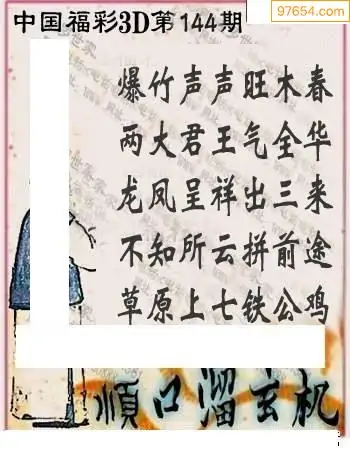 中国福彩3D第144期
97654.com
爆竹声声旺木春
两大君王气全华
龙凤呈祥出三来
不知所云拼前途
草原上七铁公鸡
顺口溜玄机